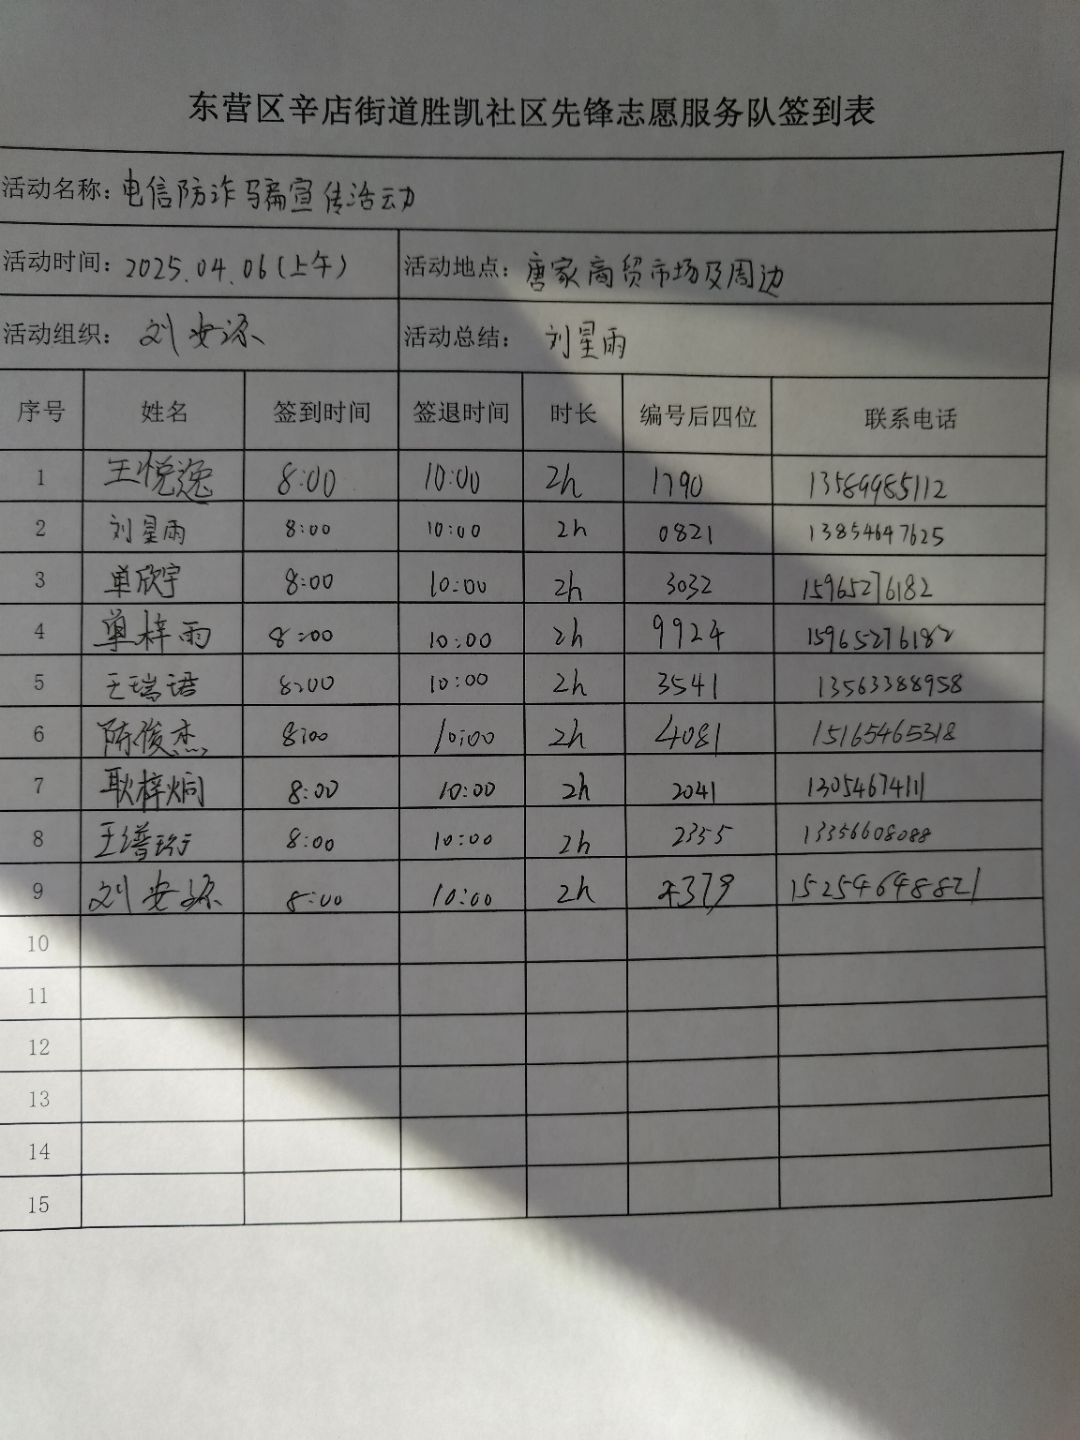 东营区辛店街道胜凯社区先锋志愿服务队签到表
活动名称：电信防诈骗宣传活动
活动时间：2025.04.06(上午) 活动地点：唐家商贸市场及周边
活动组织：刘安源 活动总结：刘星雨
序号 姓名 签到时间 签退时间 时长 编号后四位 联系电话
1 王悦逸 8:00 10:00 2h 1790 13589985112
2 刘星雨 8:00 10:00 2h 0821 13854647625
3 单欣宇 8:00 10:00 2h 3032 15965276182
4 单梓雨 8:00 10:00 2h 9924 15965276182
5 王瑞珺 8:00 10:00 2h 3541 13563388958
6 陈俊杰 8:00 10:00 2h 4081 15165465318
7 耿梓炯 8:00 10:00 2h 2041 13054674111
8 8:00 10:00 2h 2355 13356608088
9 刘安源 8:00 10:00 2h 4379 15254648821
10
11
12
13
14
15